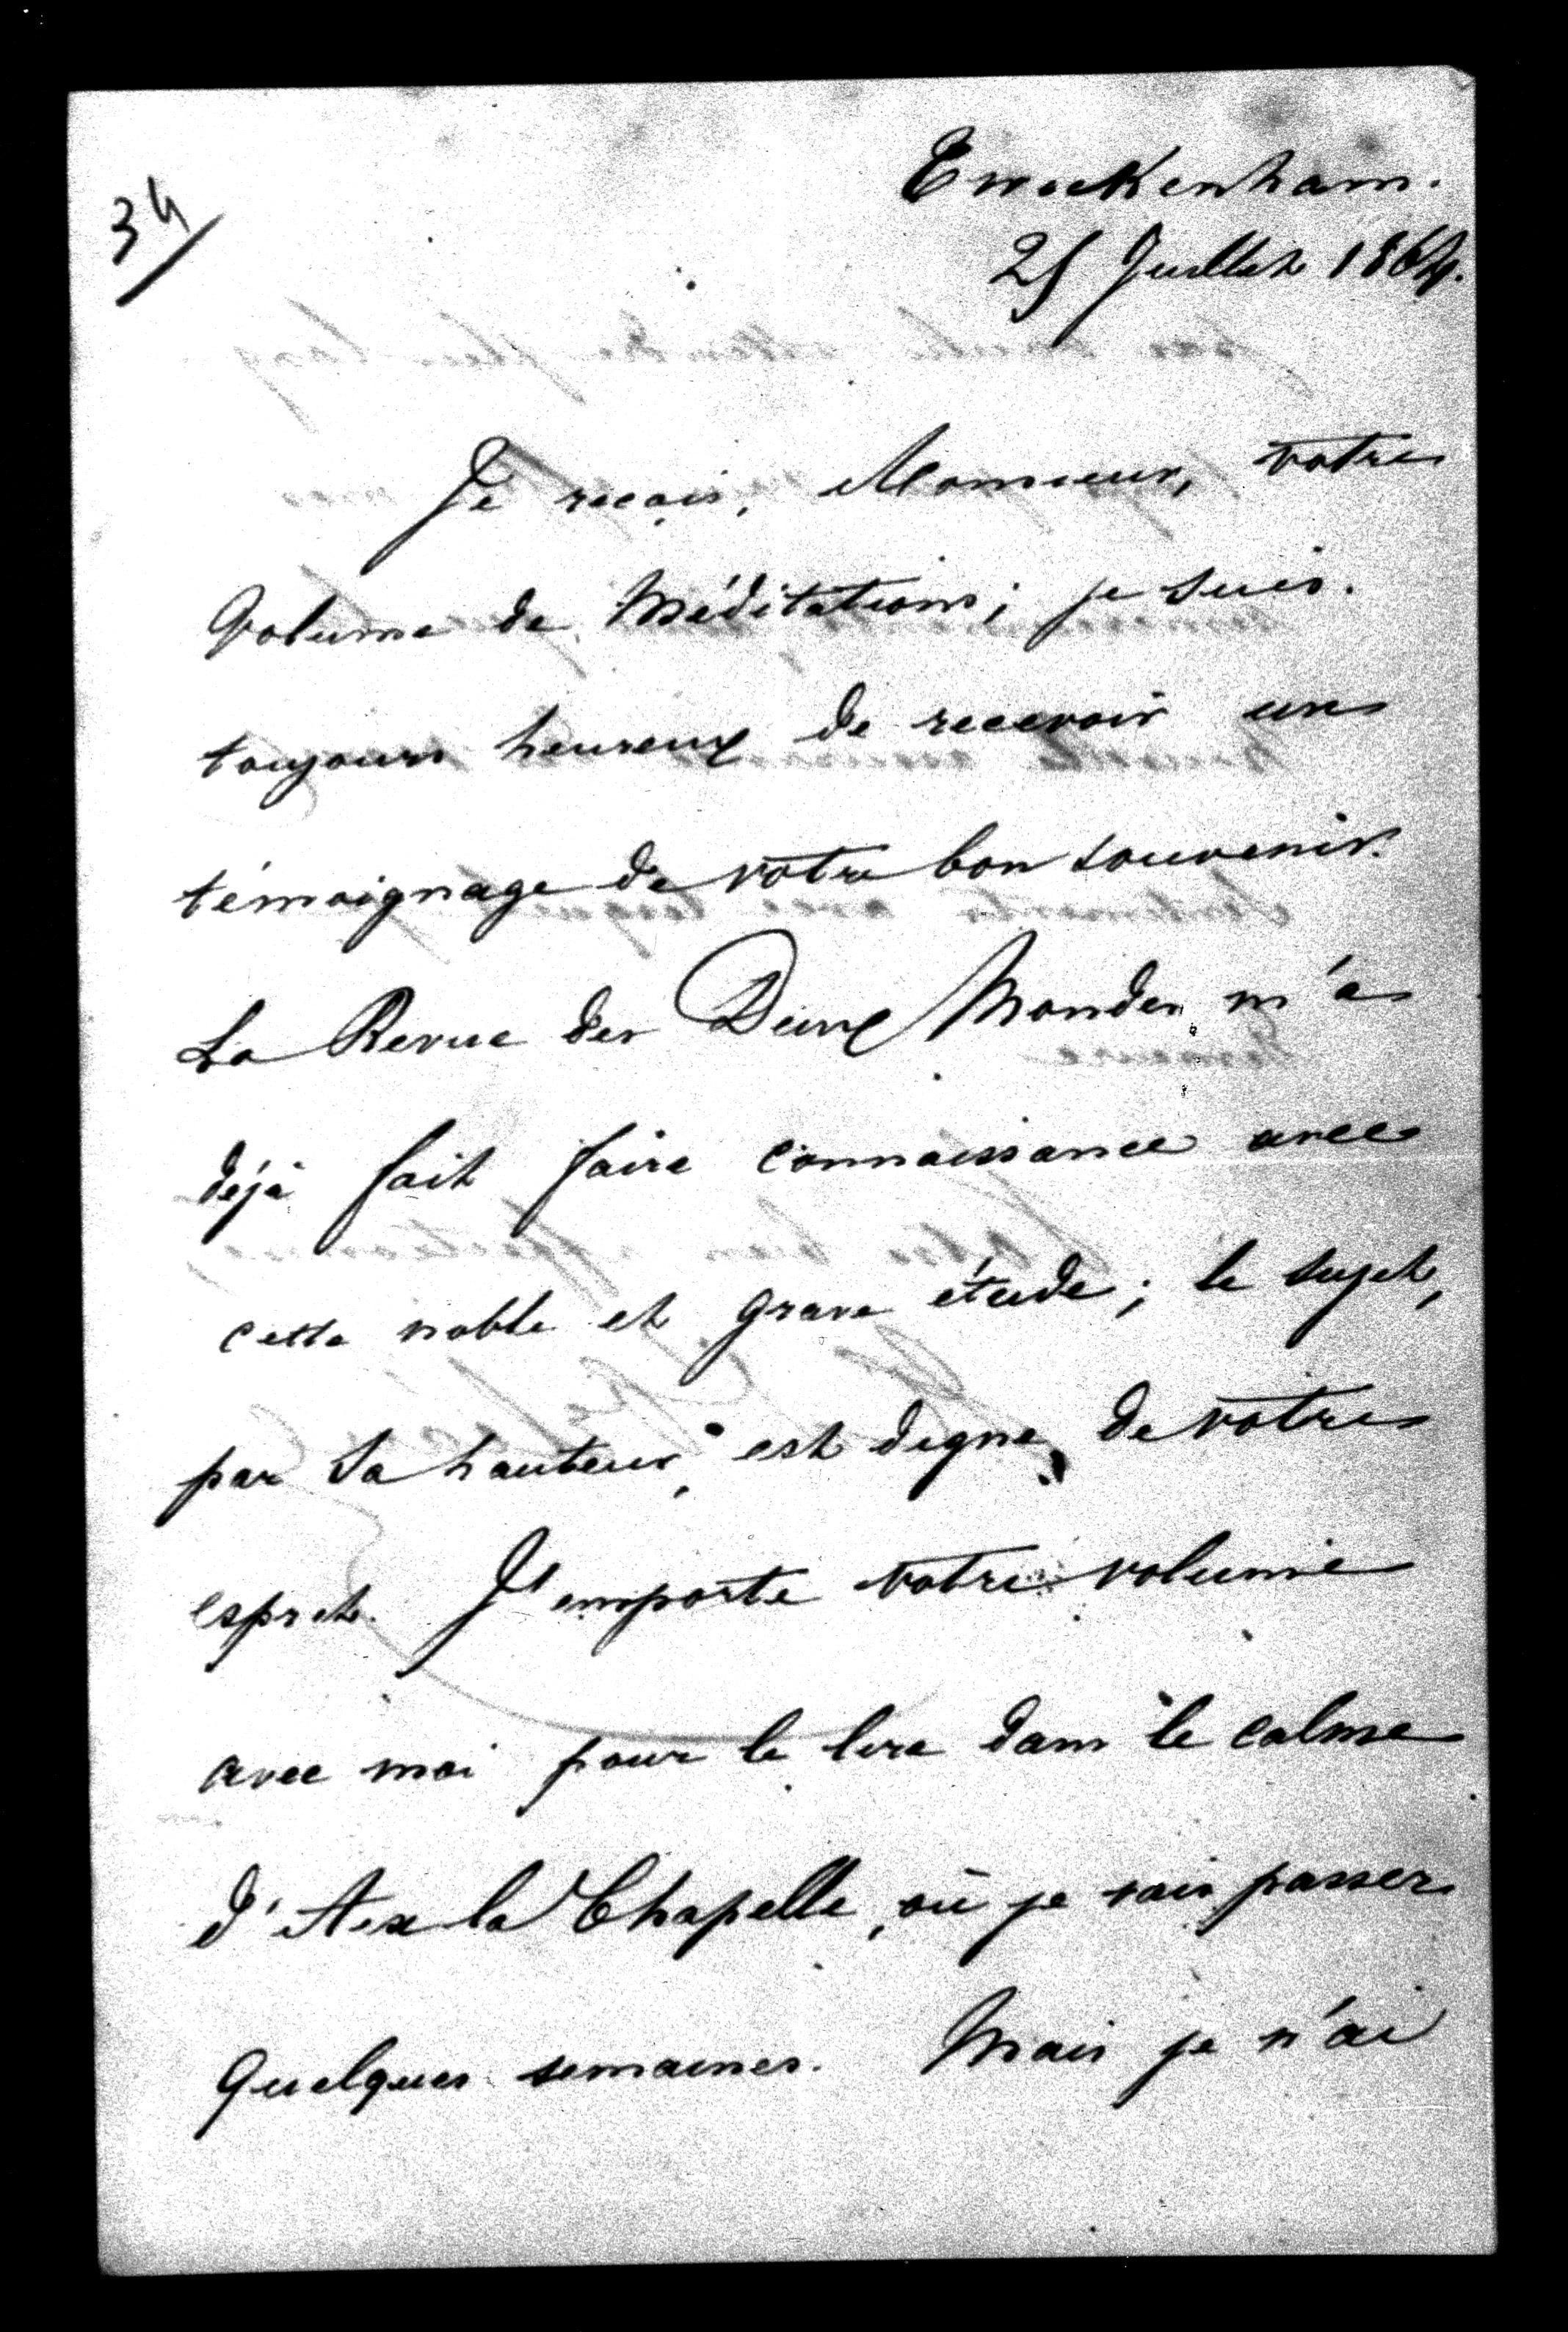 34
Twickenham.
25 Juillet 1864.
Je reçois, Monsieur, votre
volume de Méditations; je suis
toujours heureux de recevoir un
témoignage de votre bon souvenir.
La Revue des Deux Mondes m'a
déjà fait faire connaissance avec
cette noble et grave étude; le sujet,
par sa hauteur, est digne de votre
esprit. J'emporte votre volume
avec moi pour le lire dans le calme
d'Aix la Chapelle, où je vais passer
quelques semaines. Mais je n'ai